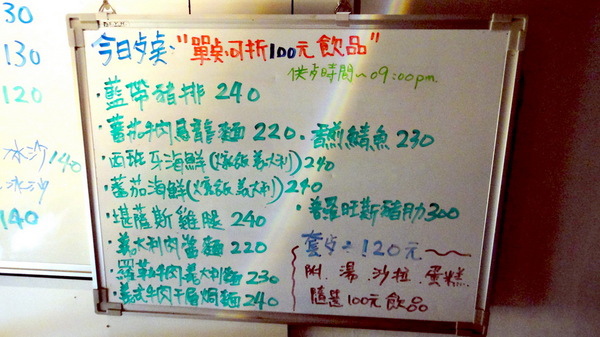 30
130
120
冰沙140
冰沙
140
今日歺点、"單点可折100元飲品"
供歺時間~09:00pm.
・藍帶豬排 240
・蕃茄牛肉烏龍麵 220
・香煎鯖魚 230
・西班牙海鮮(燉飯義大利)240
・蕃茄海鮮(燉飯義大利)240
・普羅旺斯豬肋300
・堪薩斯雞腿 240
・義大利肉醬麵 220
・羅宋牛肉義大利麵 230
・義式牛肉千層焗麵 240
套歺=120元
附.湯.沙拉.蛋糕.
隨差100元飲品